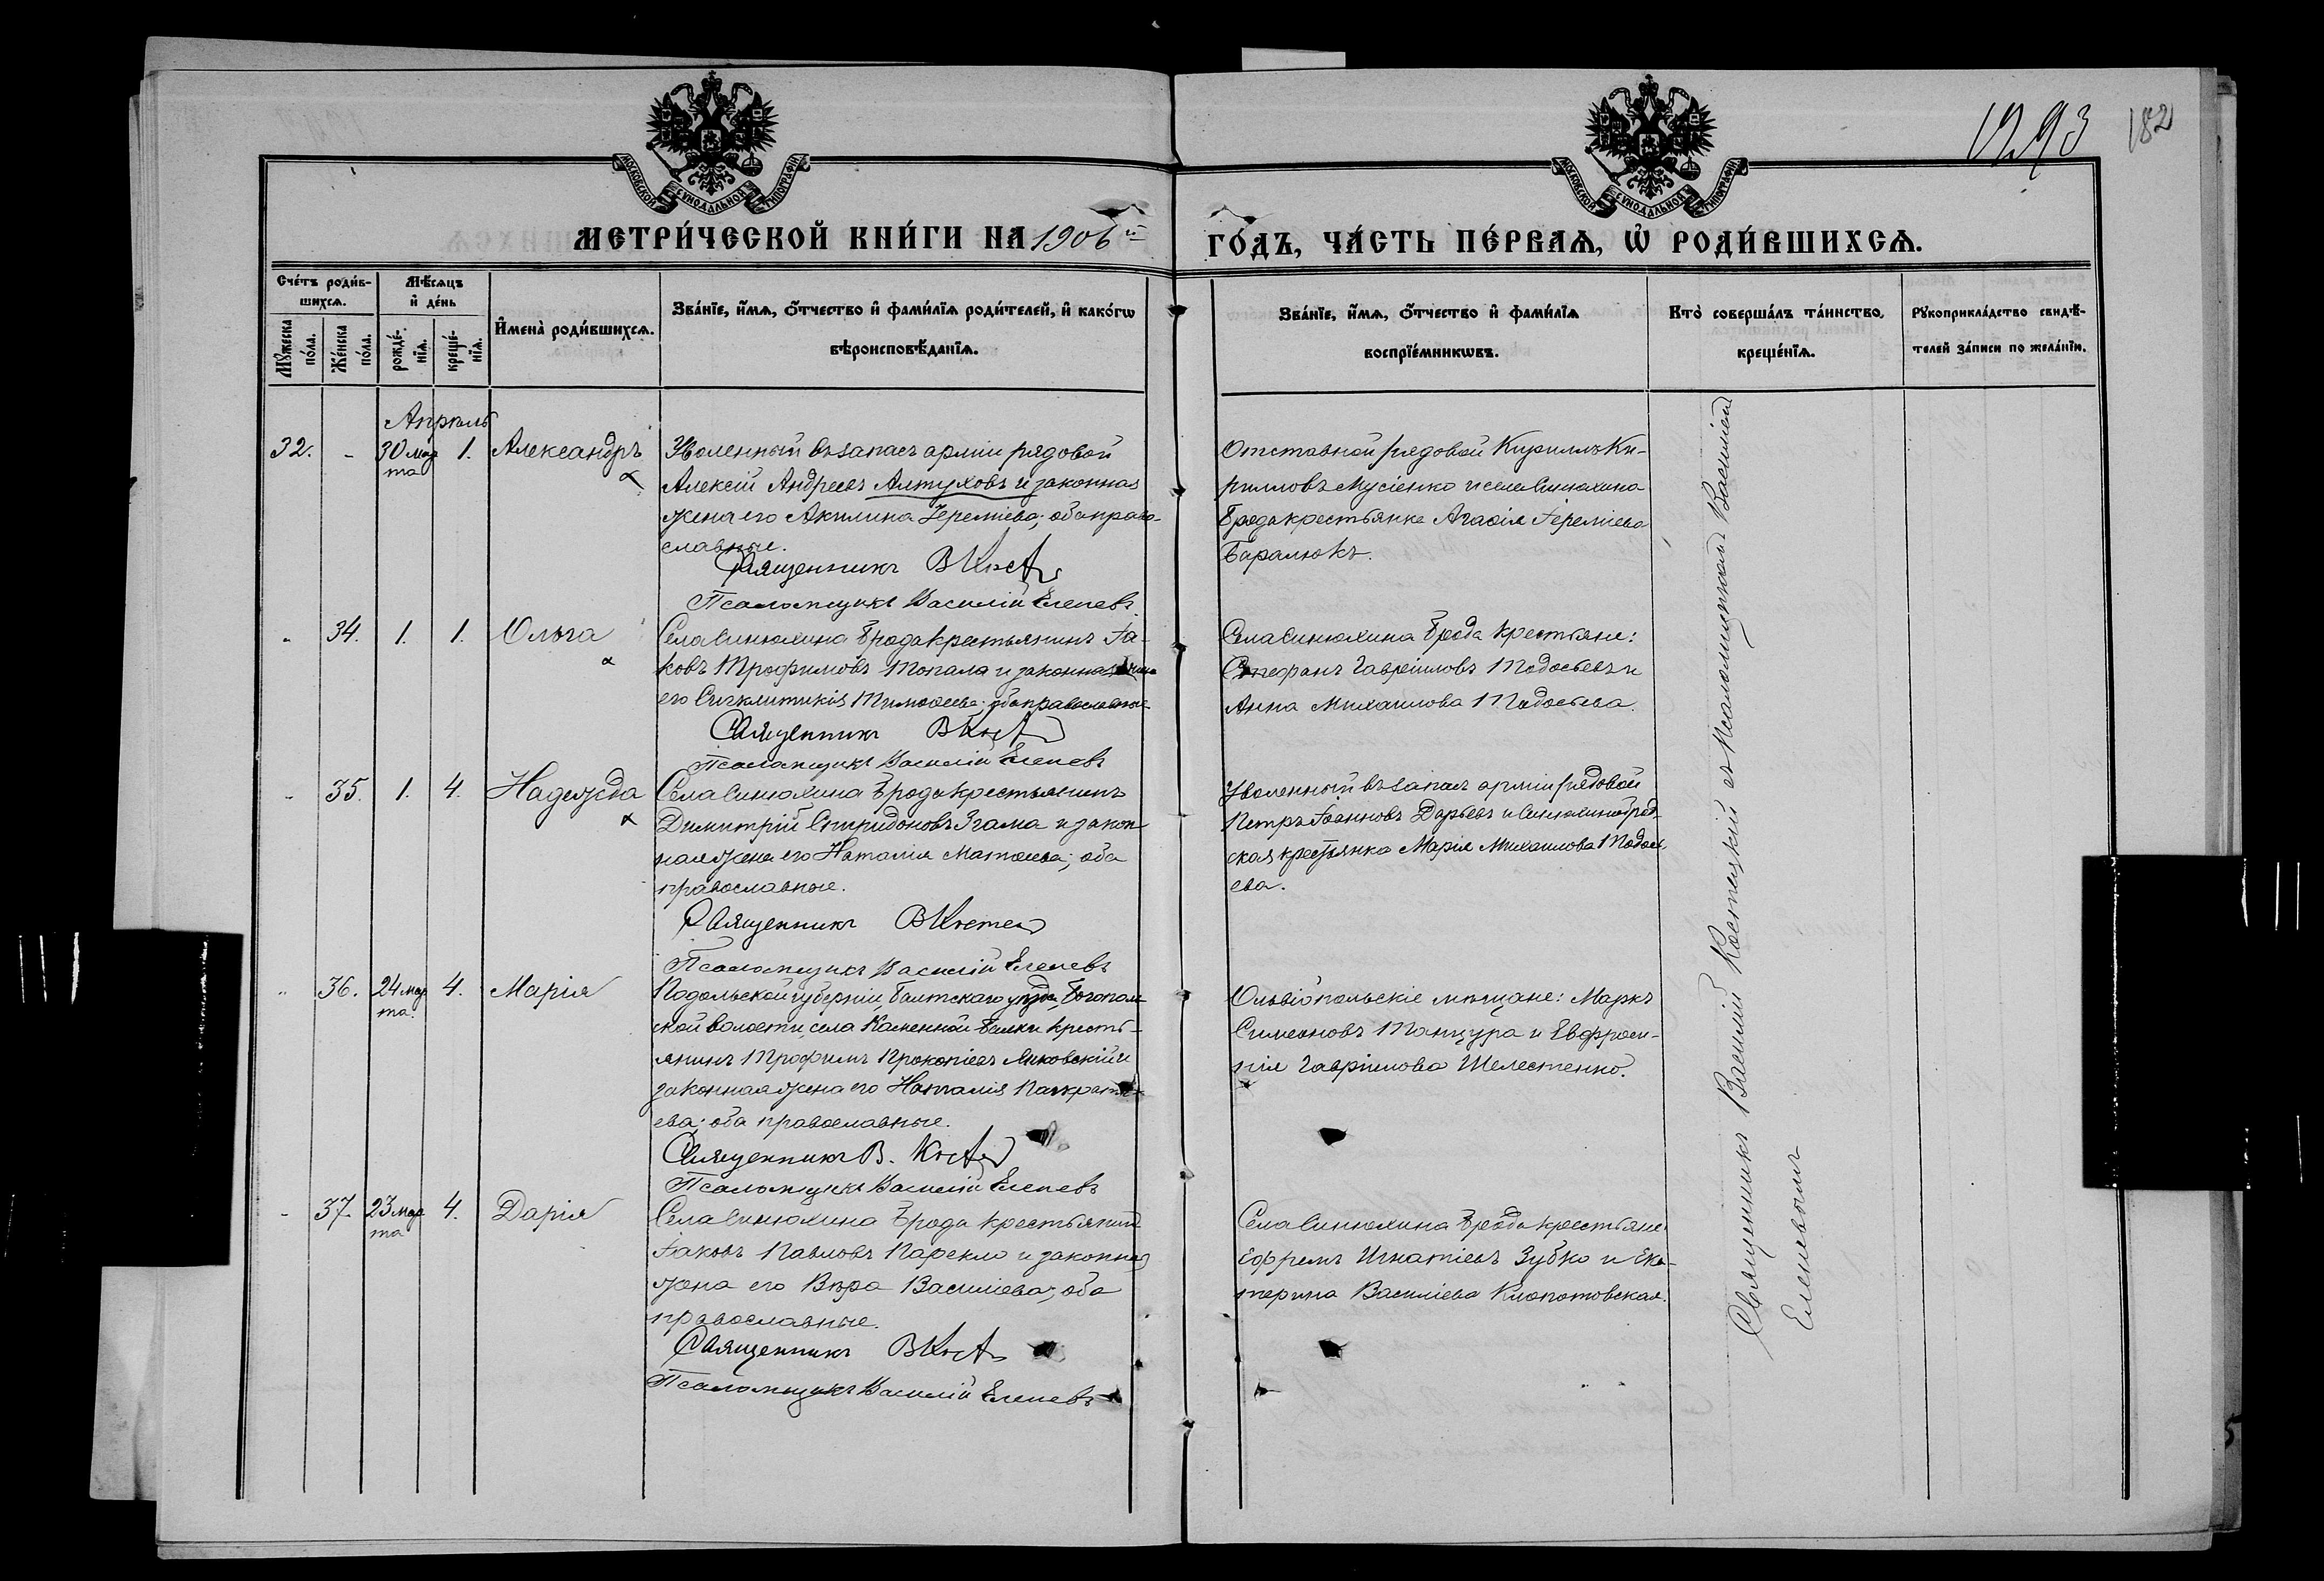 1293
182
МОСКОВСКОЙ СѴНОДАЛЬНОЙ ТИПОГРАФІИ
МОСКОВСКОЙ СѴНОДАЛЬНОЙ ТИПОГРАФІИ
МЕТРИ́ЧЕСКОЙ КНИ́ГИ НА 1906й ГО́ДЪ, ЧА́СТЬ ПЕ́РВАѦ, Ѡ҆ РОДИ́ВШИХСѦ.
Сче́тъ роди́в-
шихсѧ.
Мꙋжеска по́ла.
Же́нска по́ла.
Мѣ́сѧцъ
и҆ де́нь
рожде́-нїѧ.
креще́-нїѧ.
И҆мена̀ роди́вшихсѧ.
Зва́нїе, и҆́мѧ, ѻ҆́тчество и҆ фами́лїѧ роди́телей, и҆ како́гѡ
вѣроисповѣ́данїѧ.
Зва́нїе, и҆́мѧ, ѻ҆́тчество и҆ фами́лїѧ
воспрїе́мникѡвъ.
Кто̀ соверша́лъ та́инство
креще́нїѧ.
Рꙋкоприкла́дство свидѣ́-
телей за́писи по жела́нїю.
Апрѣль
32. - 30 мар
та 1. Александръ
Уволенный въ запасъ арміи рядовой
Алексій Андреевъ Алтуховъ и законная
жена его Акилина Іереміева; оба право-
славные.
Священникъ В Кост
Псаломщикъ Василій Еленевъ
Отставной рядовой Кириллъ Ки-
рилловъ Мусіенко и села Синюхина
Брода крестьянка Агафія Іереміева
Баралюкъ.
- 34. 1. 1. Ольга
Села Синюхина Брода крестьянинъ Іа-
ковъ Трофимовъ Топала и законная жена
его Сигклитикія Тимофеева; оба православные
Священникъ В Кост
Псаломщикъ Василій Еленевъ
Села Синюхина Брода крестьяне:
Стефанъ Гавріиловъ Тодосьевъ и
Анна Михаилова Тодосьева.
- 35. 1. 4. Надежда
Села Синюхина Брода крестьянинъ
Димитрій Спиридоновъ Згама и закон
ная жена его Наталія Матфеева; оба
православные.
Священникъ В Косте
Псаломщикъ Василій Еленевъ
Уволенный въ запасъ арміи рядовой
Петръ Іоанновъ Дарьевъ и Синюхиноброд-
ская крестьянка Марія Михаилова Тодось
ева.
- 36. 24 мар
та. 4. Марія
Подольской губерніи, Балтскаго уѣзда, Богополь
ской волости, села Каменной Балки кресть-
янинъ Трофимъ Прокопіевъ Яновскій и
законная жена его Наталія Панкрать
ева; оба православные.
Священникъ В. Кост
Псаломщикъ Василій Еленевъ
Ольвіопольскіе мѣщане: Маркъ
Симеоновъ Танцура и Евфроси-
нія Гавріилова Шелестенко.
- 37. 23 мар
та 4. Дарія
Села Синюхина Брода крестьянинъ
Іаковъ Павловъ Парекло и законная
жена его Вѣра Василіева; оба
православные.
Священникъ В Кост
Псаломщикъ Василій Еленевъ
Села Синюхина Брода крестьяне
Ефремъ Игнатіевъ Зубко и Ека-
терина Василіева Клопотовская.
Священникъ Василій Костецкій съ псаломщикомъ Василіемъ
Еленевымъ